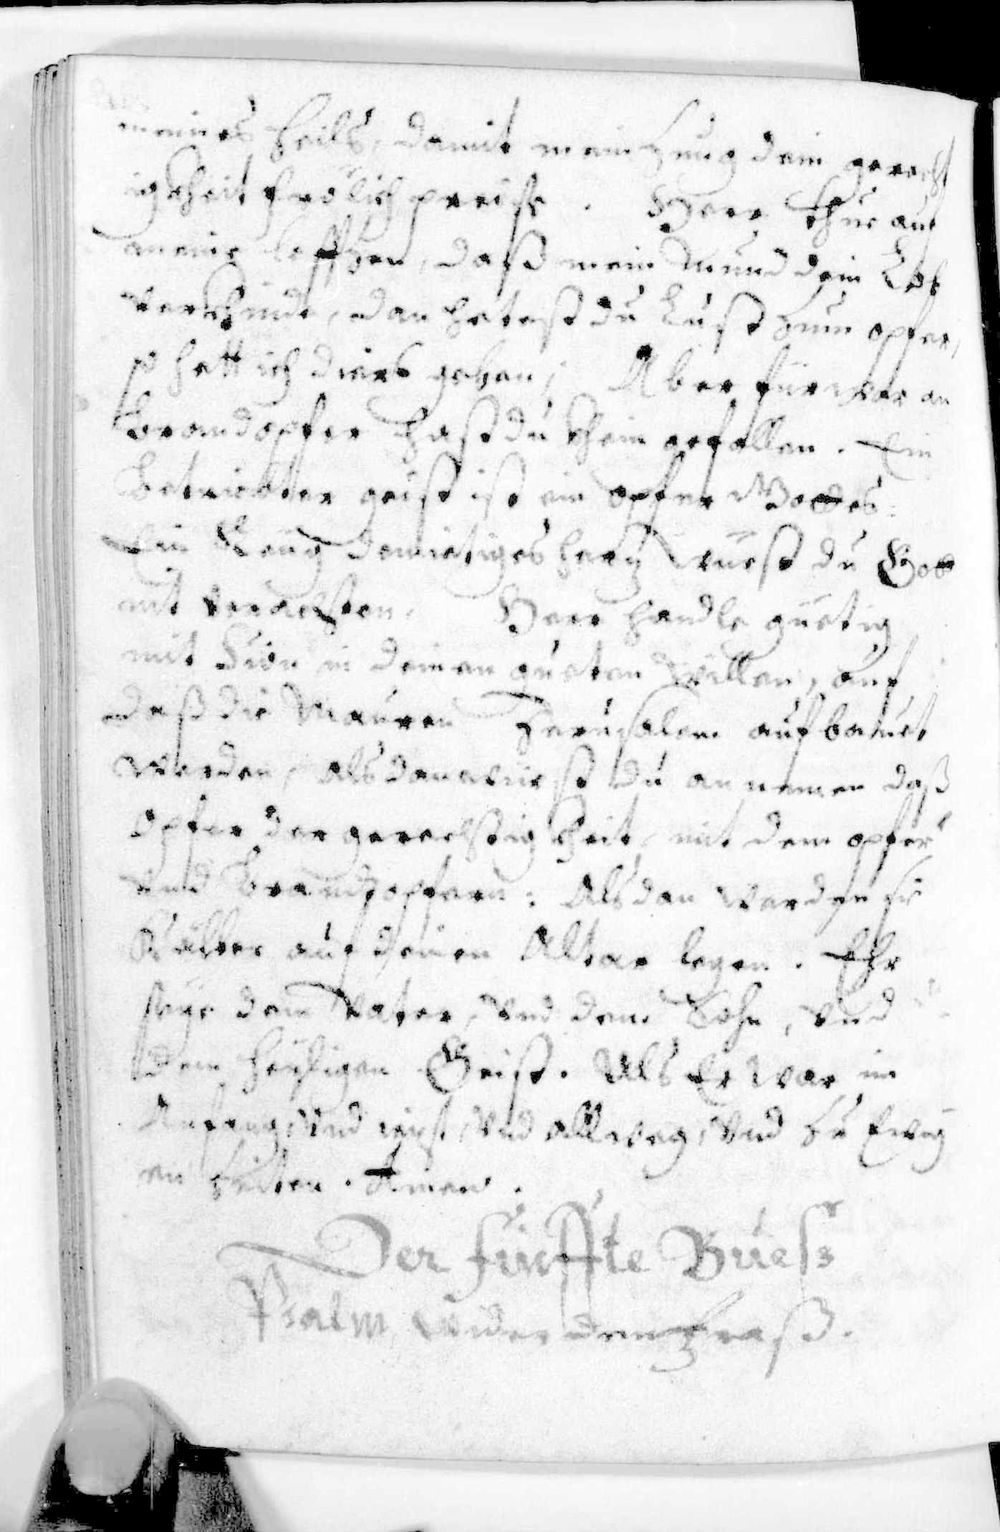 meines heils, damit mein Zung dein gerecht
igkheit frölich preise. Herr thue auf
meine leffzen, daß mein Mund dein Lob
verkhinde, dan hetest du Lust zum opfer,
so hett ich diers geben, Aber fürwar an
brandopfer hast du khein gefallen. Ein
betriebter geist ist ein opfer Gottes:
Ein Reuig demietiges herz wirst du Gott
nit verachten. Herr handle güetig
mit Sion in deinen gueten Willen, auf
daß die Mauren Jerusalem aufbauet
werden, als dan wirst du annemen daß
opfer der gerechtigkheit, mit dem opfer
und brandopfern: Als dan werden sie
Kälber auf deinen Altar legen. Ehr
seye dem Vater, und dem Sohn, und
dem heyligen Geist. Als Er war im
Anfang, und iezt, und allweg, und zu Ewig
en Zeiten. Amen.
Der fünffte Buess
Psalm, wider den fraß.